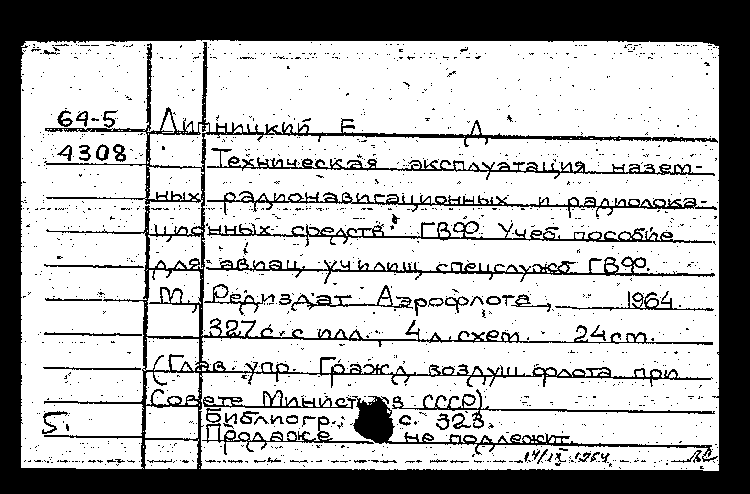 64-5 Липницкий, Е. Д.
4308 Техническая эксплуатация назем-
ных радионавигационных и радиолока-
ционных средств ГВФ. Учеб. пособие
для авиац. училищ спецслужб ГВФ.
М., Редиздат Аэрофлота, 1964.
327 с. с илл., 4 л. схем. 24 см.
(Глав. упр. Гражд. воздуш. флота при
Совете Министров СССР).
5. Библиогр.: с. 323.
Продаже не подлежит.
14/IX 1964